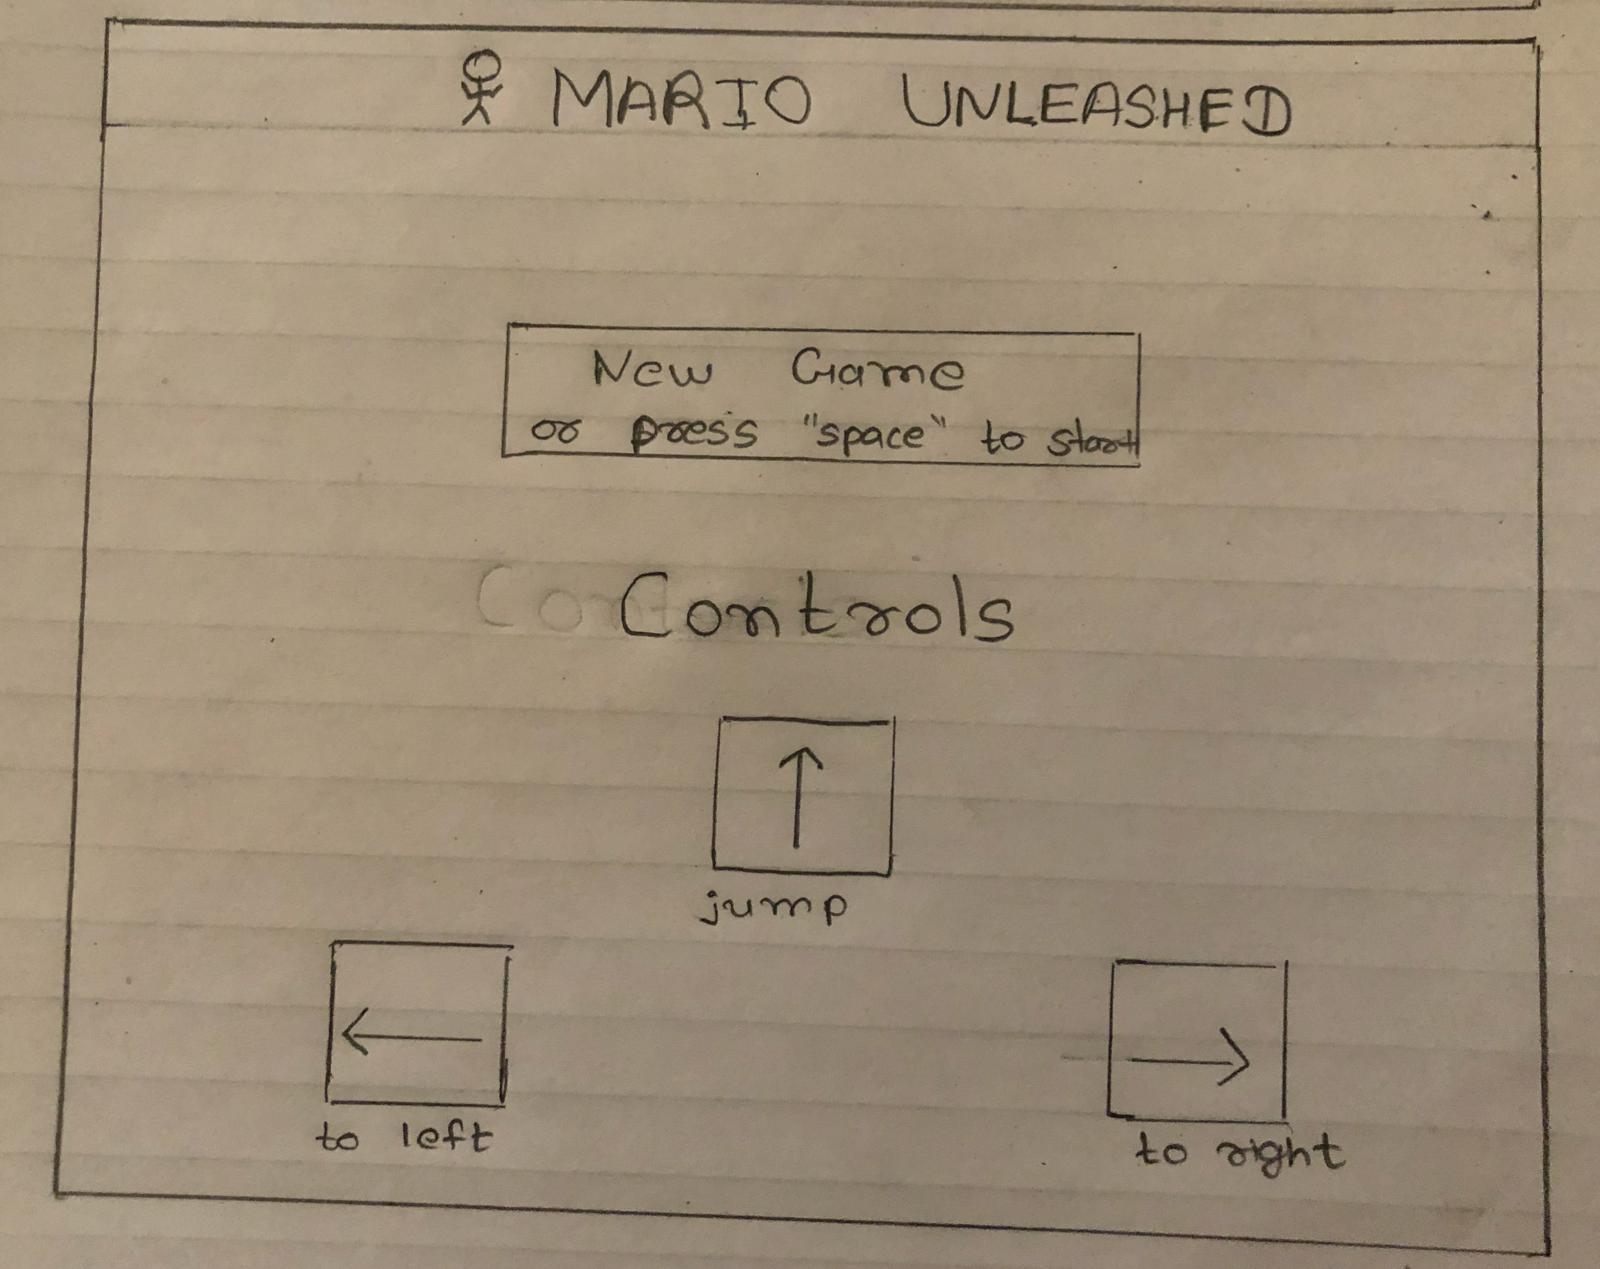 MARIO UNLEASHED
New Game
or press "space" to start
Controls
jump
to left
to right